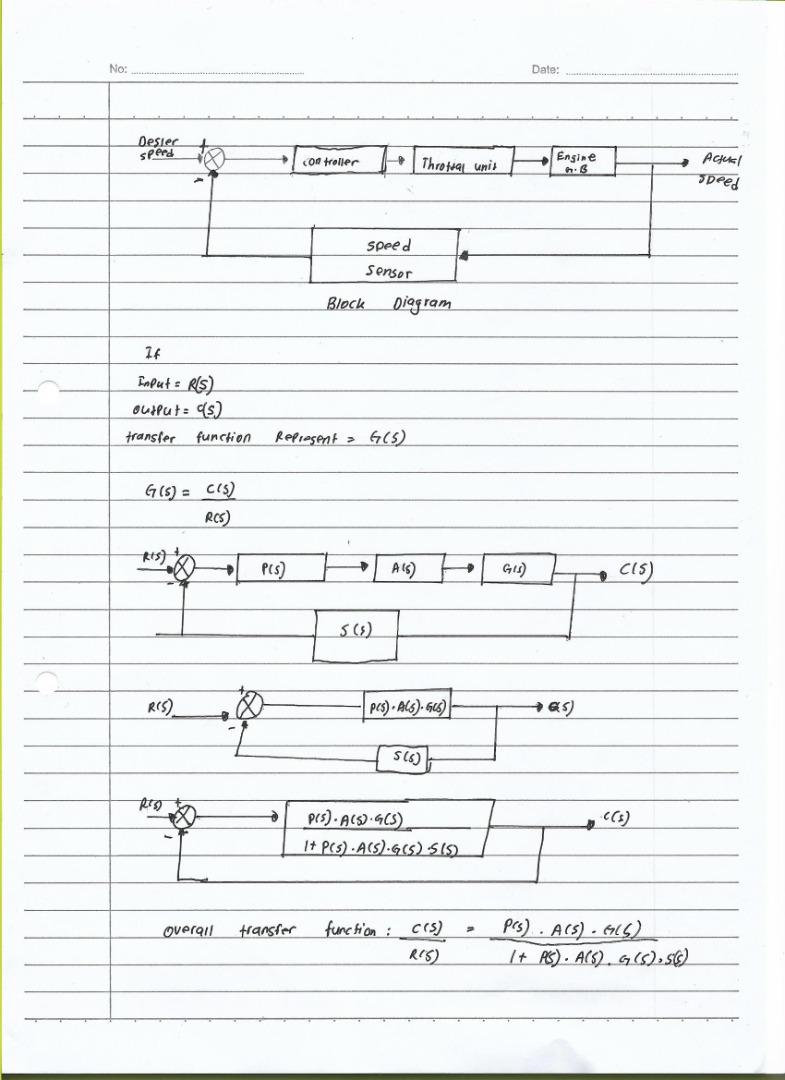 No:
Date:
Desier
speed
+
-
controller
Throtsal unit
Engine
G.B
Actual
speed
speed
sensor
Block Diagram
If
Input = R(s)
output = C(s)
transfer function Represent = G(s)
G(s) = C(s)
R(s)
R(s)
+
-
P(s)
A(s)
G(s)
C(s)
S(s)
R(s)
+
-
P(s).A(s).G(s)
C(s)
S(s)
R(s)
+
-
P(s).A(s).G(s)
1+P(s).A(s).G(s).S(s)
C(s)
overall transfer function : C(s) = P(s) . A(s) . G(s)
R(s) 1+ P(s). A(s). G(s).S(s)